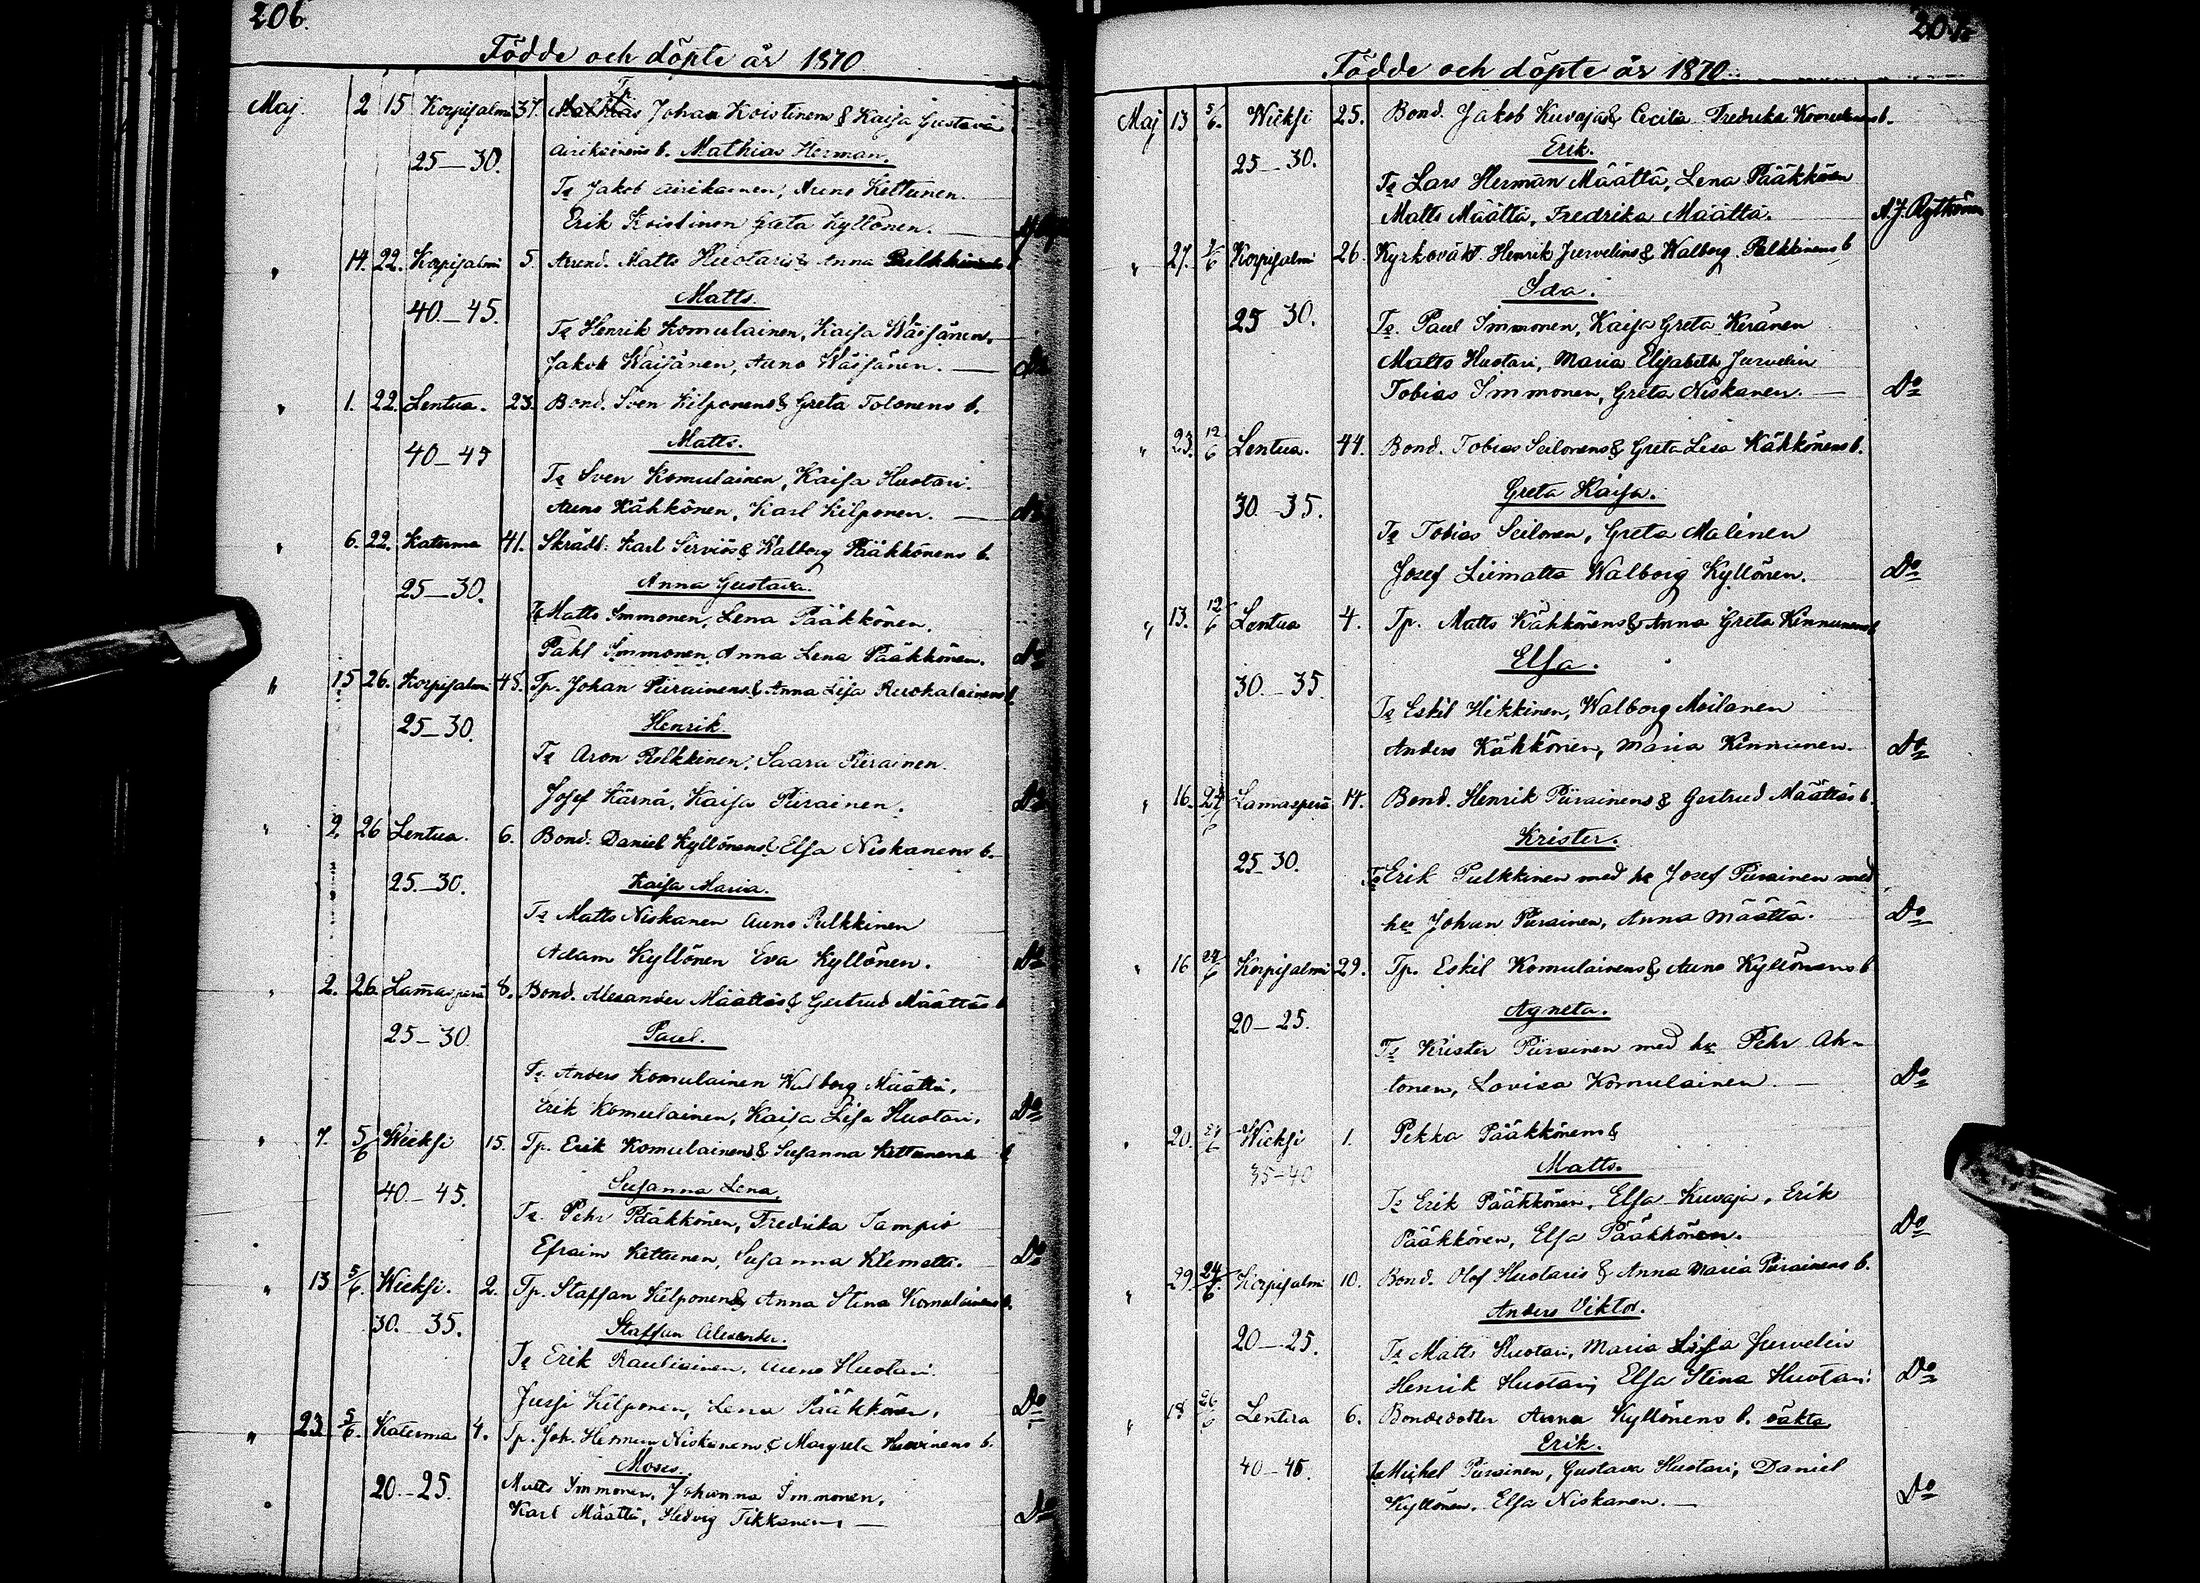 206.
Födde och döpte år 1870
Maj 2 15 Korpisalmi 37. Tp Johan Koistinens & Kaisa Gustava
Airikainens b. Mathias Herman.
25–30.
Ts Jakob Airikainen, Auno Keltunen
Erik Koistinen Greta Kyllönen.
" 14. 22. Korpisalmi 5. Arrend. Matts Huotaris & Anna Pulkkinens b
Matts.
40–45.
Ts Henrik Komulainen, Kaisa Wäisänen,
Jakob Wäisänen, Auno Wäisänen. — Do
" 1. 22. Lentua. 23. Bond. Sven Kilponens & Greta Tolonens b.
Matts.
40–45
Ts Sven Komulainen, Kaisa Huotari.
Auno Kähkönen, Karl Kilponen. — Do
" 6. 22. Katerma 41. Skrädd. Karl Serviös & Walborg Pääkkönens b.
Anna Gustava.
25–30.
Ts Matts Immonen, Lena Pääkkönen,
Pahl Immonen, Anna Lena Pääkkönen. Do
" 15 26. Korpisalmi 45. Tp. Johan Piirainens & Anna Lisa b
Henrik
25–30.
Ts Aron Pulkkinen, Saara Piirainen.
Josef Kärnä, Kaisa Piirainen. Do
" 2. 26 Lentua. 6. Bond. Daniel Kyllönens & Elsa Niskanens b.
Kaisa Maria.
25–30.
Ts Matts Niskanen Auno Pulkkinen
Adam Kyllönen Eva Kyllönen. Do
" 2. 26. Lamasperä 8. Bond. Alexander Määttäs & Gertrud Määttäs b
Paul.
25–30
Ts Anders Komulainen Walborg Määttä,
Erik Komulainen, Kaisa Lisa Huotari. Do
" 7. 5/6 Wieksi 15. Tp. Erik Komulainens & Susanna Kettunens b
Susanna Lena,
40–45.
Ts. Pehr Pääkkönen, Fredrika Tampio
Efraim Kettunen, Susanna Klemetti. Do
" 13 5/6 Wieksi. 2. Tp. Staffan Kilponens & Anna Stina Komulainens b.
Staffan Alexander.
30.–35.
Ts Erik Rautiainen, Auno Huotari.
Jussi Kilponen, Lena Pääkkönen. Do
" 23 5/6. Katerma 4. Tp. Joh. Herman Niskanens & Margreta b.
Moses.
20–25.
Matts Immonen, Johanna Immonen,
Karl Määttä, Hedvig Tikkanen, — Do
207.
Födde och döpte år 1870.
Maj 13 5/6. Wieksi 25. Bond. Jakob Kuvajas & Cecilia Fredrika b.
Erik.
25–30.
Ts Lars Herman Määttä, Lena Pääkkönen
Matts Määttä, Fredrika Määttä. A. J. Rytkönen
" 27. Korpisalmi 26. Kyrkoväkt. Henrik Jurvelins & Walborg Pulkkinens b
Ida.
25 30.
Ts. Paul Immonen, Kaisa Greta Keränen
Matts Huotari, Maria Elisabeth Jurvelin
Tobias Immonen, Greta Niskanen. — Do
" 23. 12/6 Lentua. 44. Bond. Tobias Seilonens & Greta Lisa Kähkönens b.
Greta Kaisa.
30–35.
Ts Tobias Seilonen, Greta Malinen
Josef Liimatta Walborg Kyllönen. Do
" 13. 12/6 Lentua 4. Tp. Matts Kähkönens & Anna Greta Kinnunens b
Elsa.
30.–35.
Ts Eskil Heikkinen, Walborg Moilanen
Anders Kähkönen, Maria Kinnunen. Do
" 16. 24/6 Lamasperä 14. Bond. Henrik Piirainens & Gertrud Määttäs b.
Krister.
25–30.
Ts Erik Pulkkinen med h: Josef Piirainen med
h: Johan Piirainen, Anna Määttä. Do
" 16 24/6 Korpisalmi 29. Tp. Eskil Komulainens & Auno Kyllönens b
Agneta.
20–25.
Ts Krister Piirainen med h: Pehr Ah-
tonen, Lovisa Komulainen. — Do
" 20. 24/6 Wieksi 1. Pekka Pääkkönens &
Matts.
35–40
Ts Erik Pääkkönen, Elsa Kuvaja, Erik
Pääkkönen, Elsa Pääkkönen. Do
" 29. 24/6 Korpisalmi 10. Bond. Olof Huotaris & Anna Maria Piirainens b.
Anders Viktor.
20–25.
Ts Matts Huotari, Maria Lisa Jurvelin
Henrik Huotari, Elsa Stina Huotari. Do
" 18 26/6 Lentua 6. Bondedotter Anna Kyllönens b. oäkta
Erik.
40–45.
Ts Michel Piirainen, Gustava Huotari, Daniel
Kyllönen, Elsa Niskanen. — Do